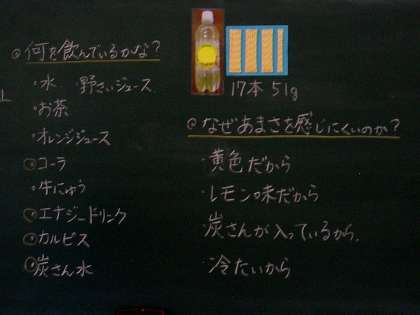 何を飲んでいるかな?
・水 野さいジュース
・お茶
・オレンジジュース
・コーラ
・牛にゅう
・エナジードリンク
・カルピス
・炭さん水
17本 51g
なぜあまさを感じにくいのか?
・黄色だから
・レモン味だから
炭さんが入っているから
・冷たいから